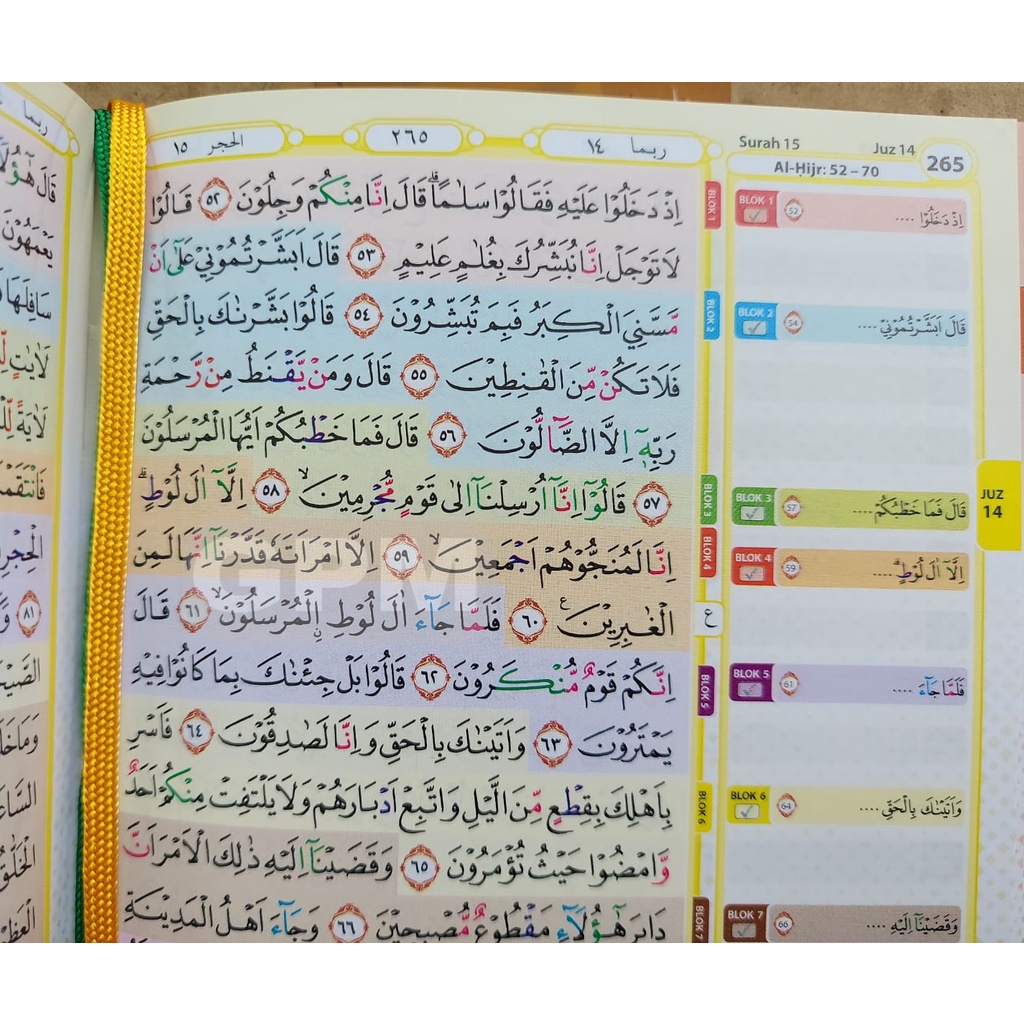 ربما ١٤
٢٦٥
الحجر ١٥
اِذْ دَخَلُوْا عَلَيْهِ فَقَالُوْا سَلٰمًاۗ قَالَ اِنَّا مِنْكُمْ وَجِلُوْنَ ٥٢ قَالُوْا
لَا تَوْجَلْ اِنَّا نُبَشِّرُكَ بِغُلٰمٍ عَلِيْمٍ ٥٣ قَالَ اَبَشَّرْتُمُوْنِيْ عَلٰٓى اَنْ
مَّسَّنِيَ الْكِبَرُ فَبِمَ تُبَشِّرُوْنَ ٥٤ قَالُوْا بَشَّرْنٰكَ بِالْحَقِّ
فَلَا تَكُنْ مِّنَ الْقٰنِطِيْنَ ٥٥ قَالَ وَمَنْ يَّقْنَطُ مِنْ رَّحْمَةِ
رَبِّهٖٓ اِلَّا الضَّاۤلُّوْنَ ٥٦ قَالَ فَمَا خَطْبُكُمْ اَيُّهَا الْمُرْسَلُوْنَ
٥٧ قَالُوْٓا اِنَّآ اُرْسِلْنَآ اِلٰى قَوْمٍ مُّجْرِمِيْنَۙ ٥٨ اِلَّآ اٰلَ لُوْطٍۗ
اِنَّا لَمُنَجُّوْهُمْ اَجْمَعِيْنَۙ ٥٩ اِلَّا امْرَاَتَهٗ قَدَّرْنَآ اِنَّهَا لَمِنَ
الْغٰبِرِيْنَ ࣖ ٦٠ فَلَمَّا جَاۤءَ اٰلَ لُوْطِ ِۨالْمُرْسَلُوْنَۙ ٦١ قَالَ
اِنَّكُمْ قَوْمٌ مُّنْكَرُوْنَ ٦٢ قَالُوْا بَلْ جِئْنٰكَ بِمَا كَانُوْا فِيْهِ
يَمْتَرُوْنَ ٦٣ وَاَتَيْنٰكَ بِالْحَقِّ وَاِنَّا لَصٰدِقُوْنَ ٦٤ فَاَسْرِ
بِاَهْلِكَ بِقِطْعٍ مِّنَ الَّيْلِ وَاتَّبِعْ اَدْبَارَهُمْ وَلَا يَلْتَفِتْ مِنْكُمْ اَحَدٌ
وَّامْضُوْا حَيْثُ تُؤْمَرُوْنَ ٦٥ وَقَضَيْنَآ اِلَيْهِ ذٰلِكَ الْاَمْرَ اَنَّ
دَابِرَ هٰٓؤُلَاۤءِ مَقْطُوْعٌ مُّصْبِحِيْنَ ٦٦ وَجَاۤءَ اَهْلُ الْمَدِيْنَةِ
GPM
BLOK 1
BLOK 2
BLOK 3
BLOK 4
ع
BLOK 5
BLOK 6
BLOK 7
Surah 15 Juz 14
265
Al-Ḥijr: 52 – 70
BLOK 1 52 اِذْ دَخَلُوْا ....
BLOK 2 54 قَالَ اَبَشَّرْتُمُوْنِيْ ....
BLOK 3 57 قَالَ فَمَا خَطْبُكُمْ ....
BLOK 4 59 اِلَّآ اٰلَ لُوْطٍۗ ....
BLOK 5 61 فَلَمَّا جَاۤءَ ....
BLOK 6 64 وَاَتَيْنٰكَ بِالْحَقِّ ....
BLOK 7 66 وَقَضَيْنَآ اِلَيْهِ ....
JUZ
14
ربما
قَالَ
يَعْمَهُوْنَ
سَافِلَهَا
لَاٰيٰتٍ
لَاٰيَةً
الْحِجْرِ
٨١